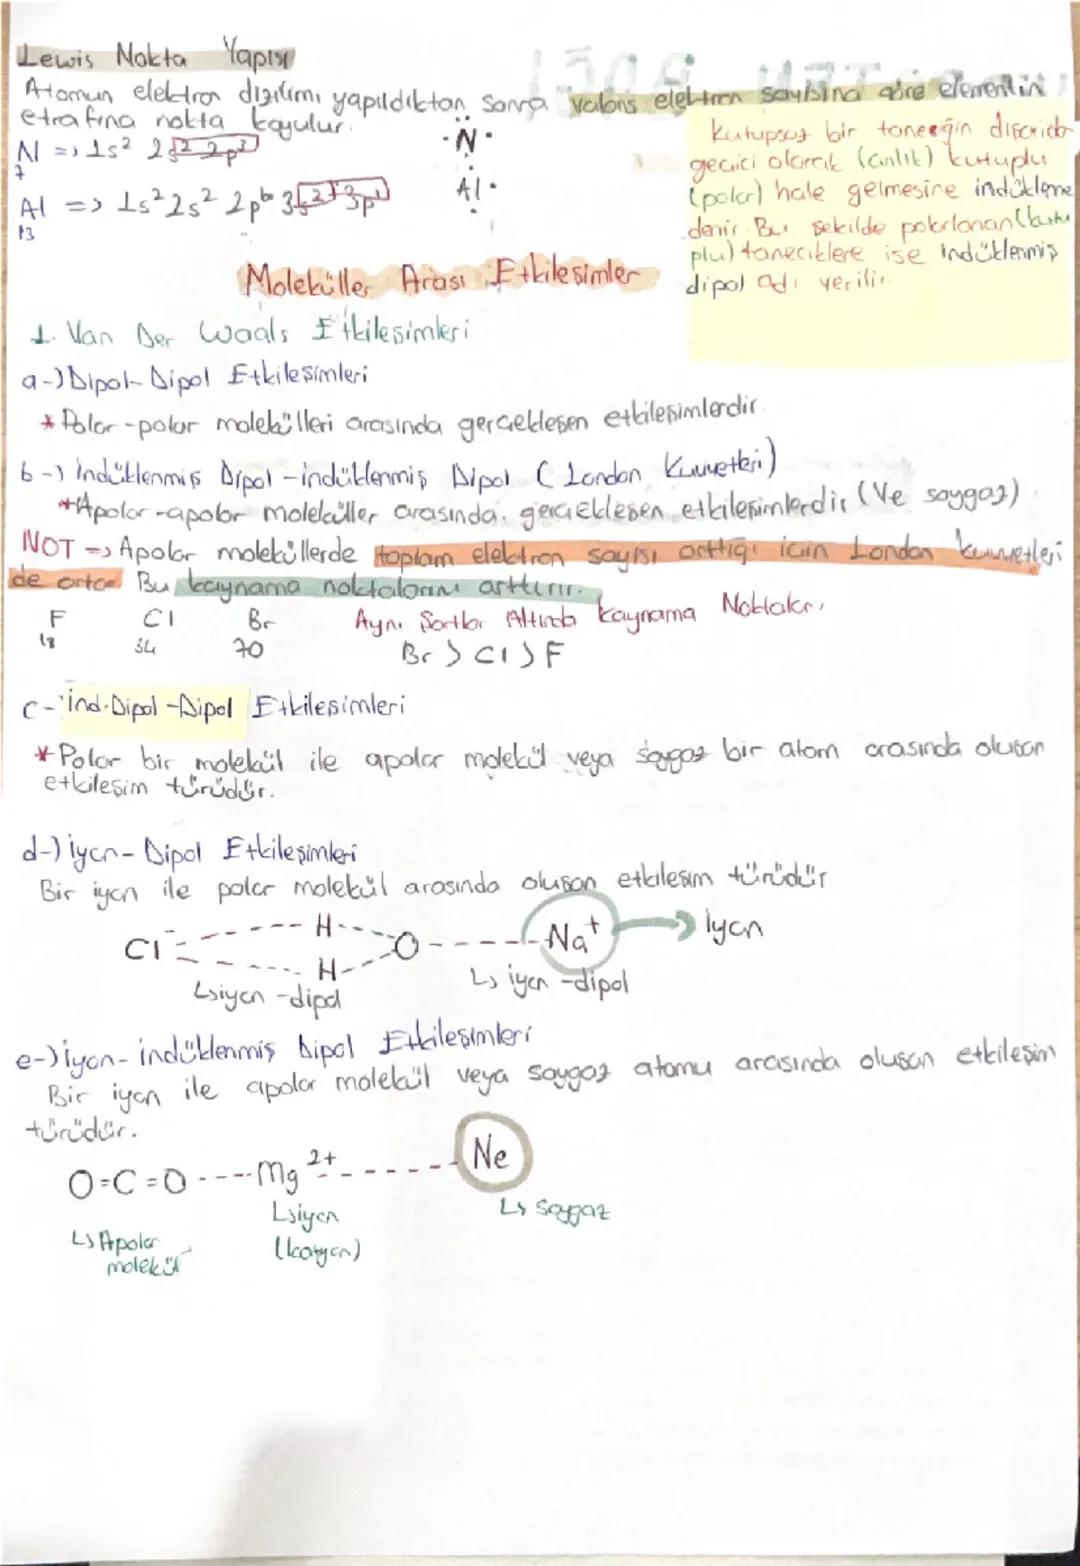 Lewis Nokta Yapısı
Atomun elektron dizilimi yapıldıktan sonra valans elektron sayısına göre elementin
etrafına nokta koyulur.
N => 1s² 2s² 2p³
7
·N·
Al => 1s² 2s² 2p⁶ 3s² 3p¹
13
Al·
Kutupsuz bir taneciğin dışarıdan
geçici olarak (anlık) kutuplu
(polar) hale gelmesine indükleme
denir. Bu şekilde polarlanan (kutu
plu) taneciklere ise indüklenmiş
dipol adı verilir.
Moleküller Arası Etkileşimler
1. Van Der Waals Etkileşimleri
a-) Dipol-Dipol Etkileşimleri
* Polar-polar molekülleri arasında gerçekleşen etkileşimlerdir.
b-) İndüklenmiş Dipol-indüklenmiş Dipol (London Kuvvetleri)
* Apolar-apolar moleküller arasında gerçekleşen etkileşimlerdir (Ve soygaz)
NOT => Apolar moleküllerde toplam elektron sayısı arttığı için London kuvvetleri
de artar Bu kaynama noktalarını arttırır.
F Cl Br Aynı Şartlar Altında Kaynama Noktaları
18 34 70 Br > Cl > F
c- İnd.Dipol-Dipol Etkileşimleri
* Polar bir molekül ile apolar molekül veya soygaz bir atom arasında oluşan
etkileşim türüdür.
d-) iyon-Dipol Etkileşimleri
Bir iyon ile polar molekül arasında oluşan etkileşim türüdür
Cl⁻ ---- H ---- O ------ Na⁺ → İyon
---- H ----
↳ iyon-dipol ↳ iyon-dipol
e-) iyon-indüklenmiş Dipol Etkileşimleri
Bir iyon ile apolar molekül veya soygaz atomu arasında oluşan etkileşim
türüdür.
O=C=O ---- Mg²⁺ ------ Ne
↳ Apolar molekül
↳ iyon (katyon)
↳ Soygaz